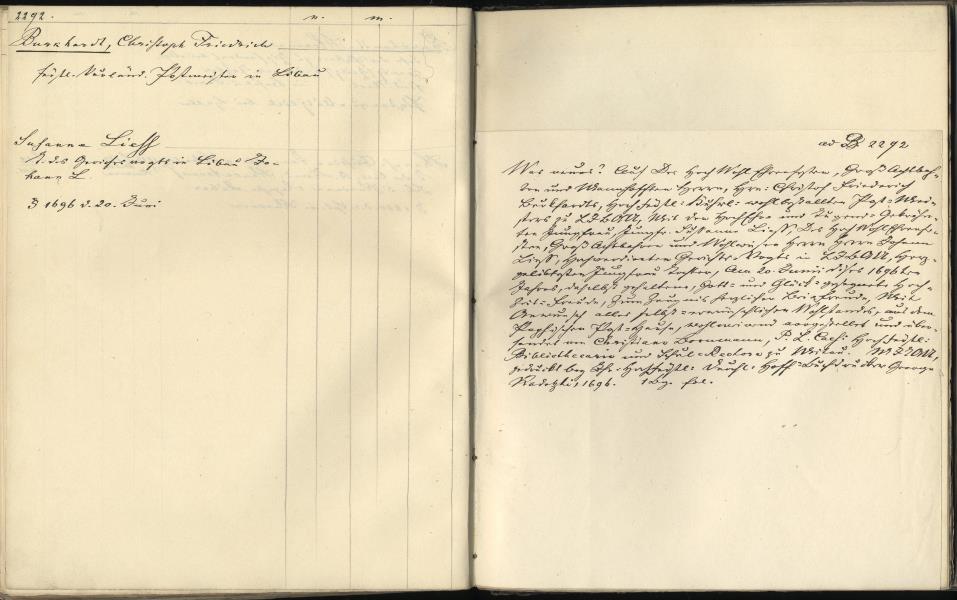 2292.
v. m.
Burkhardt, Christoph Friedrich
fürstl. Kurländ. Postmeister in Libau
Susanna Liess
T. des Gerichtsvogts in Libau Jo-
hann L.
1696 d. 20. Juni
ad B 2292
Was neues? Auf Des HochWohl Ehrenfesten, GroßAchtbah-
ren und Mannhafften Herrn, Hrn. Christoph Friederich
Burkhardts, Hochfürstl: Wohlbestallten Post-Mei-
sters zu LIBAU, Mit der HochEhr und Tugend-Gebohr-
nen Jungfrau, Jungfr. Susanna Liess, Des HochWohlEhrenfe-
sten, GroßAchtbahren und Wohlweisen Herrn Herrn Johann
Liess, Hochverdienten Gerichts-Vogts in LIBAU, Hertz-
geliebtesten Jungfrau Tochter, Am 20. Junii dieses 1696ten
Jahres, daselbst gehaltene, Gott- und Glück-gesegnete Hoch-
zeit-Freude, Zum Zeugnis hertzlicher Beyfreude, Mit
Anwunsch alles selbst-erwünschlichen Wohlstandes, aus dem
Paphischen Post-Hause, wohlmeinend vorgestellet und über-
sendet von Christiano Bornmann, P. L. Caes: Hochfürstl:
Bibliothecario und Schul-Rectore zu Mitau. MITAU,
gedruckt bey Hochfürstl: Durchl: Hoff-Buchdrucker George
Radetzki, 1696. 1 Bg. fol.